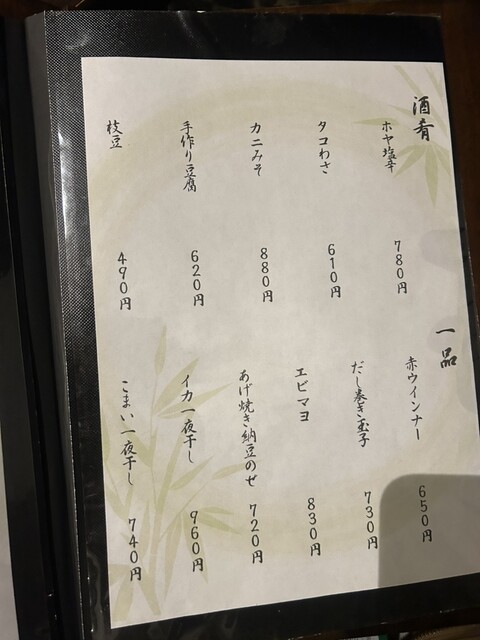 酒肴
ホヤ塩辛 780円
タコわさ 610円
カニみそ 880円
手作り豆腐 620円
枝豆 490円
一品
赤ウインナー 650円
だし巻き玉子 730円
エビマヨ 830円
あげ焼き納豆のせ 720円
イカ一夜干し 960円
こまい一夜干し 740円